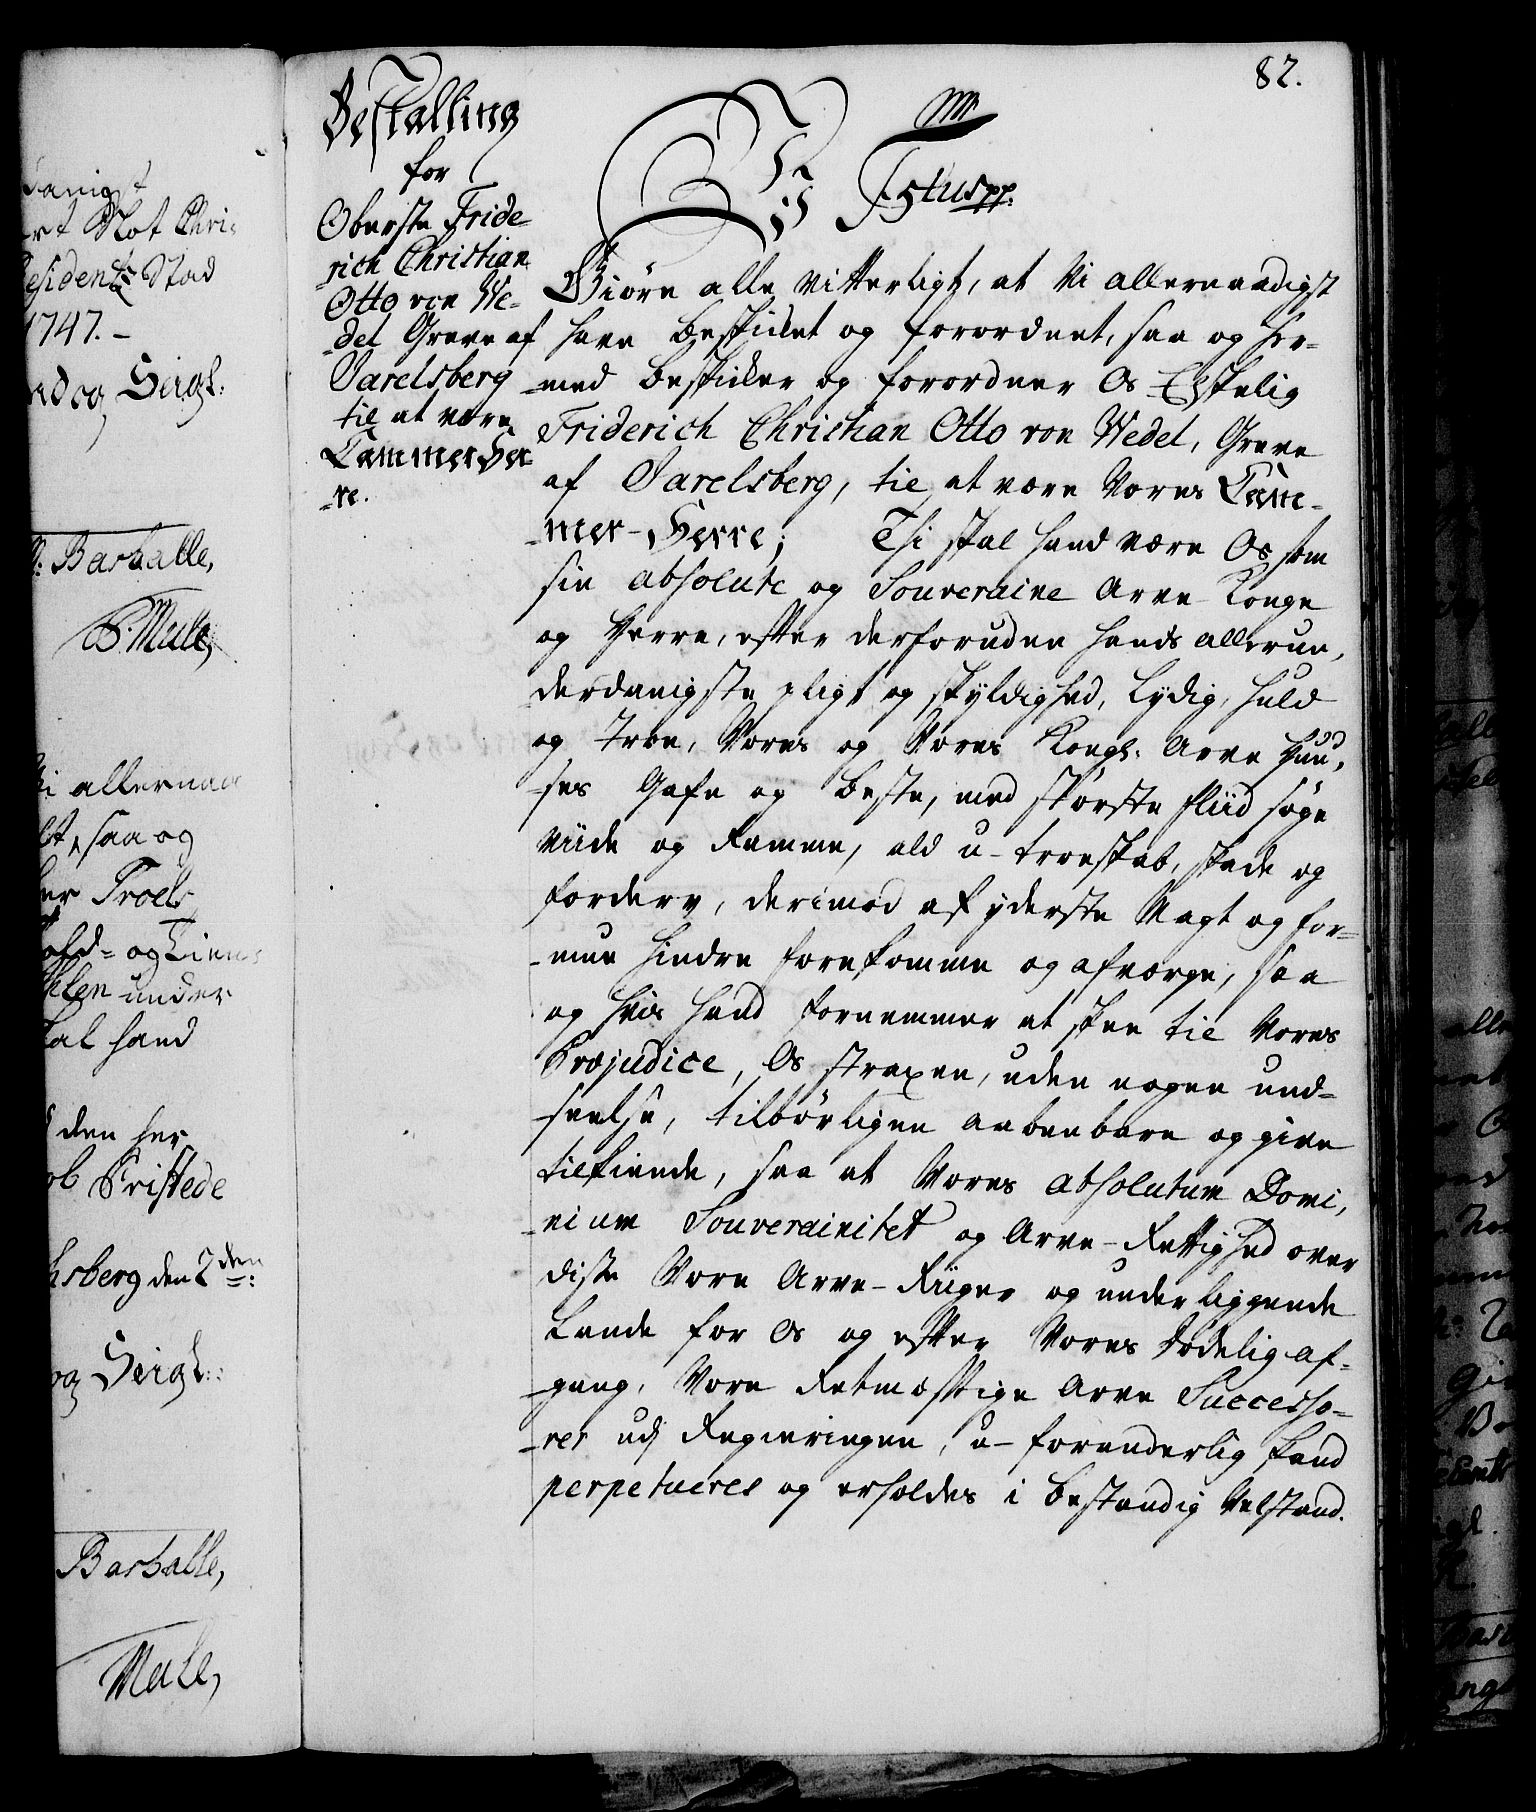 82.
Bestalling
for
Oberste Fride-
rich Christian
Otto von We-
del Greve af
Jarelsberg
til at være
Cammer Her
-re.
Ftus pp.
Giöre alle vitterligt, at Vi allernaadigst
have beskikket og forordnet, saa og her-
-med beskikker og forordner Os Elskelig
Friderich Christian Otto von Wedel, Greve
af Jarelsberg, til at være Vores Cam-
-mer-Herre; Thi skal hand være Os som
sin absolute og Souveraine Arve-Konge
og Herre, efter derforuden hands allerun-
derdanigste pligt og skyldighed, Lydig, huld
og troe, Vores og Vores Kongl: Arve Huu-
-ses Gafn og Beste, med störste fliid söge
viide og ramme, ald u-troeskab, skade og
forderv, derimod af yderste Magt og for-
-mue hindre forekomme og afværge, saa
og hvis hand fornemmer at skee til Vores
Præjudice, Os straxen, uden nogen und-
-seelse, tilbörligen aabenbare og give
tilkiende, saa at Vores absolutum Domi-
-nium Souverainitet og Arve-Rettighed over
disse Vore Arve-Riiger og underliggende
Lande for Os og efter Vores dödelig af-
-gang, Vore Retmæssige Arve Successo-
-rer udj Regieringen, u-foranderlig kand
perpetueres og erholdes i bestandig Velstand.
danigst
Slot Chri-
Residentz Stad
1747.-
og Seigl:
Barhalle,
P. Mule,
Vi allernaa
saa og
Troels
og Liens
under
skal hand
den her
Fristede
hsberg den 2den:
og Seigl::
Barhalle,
Mule,